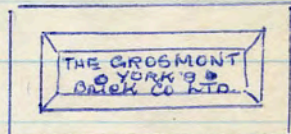 THE GROSMONT
YORK'S
BRICK CO LTD.